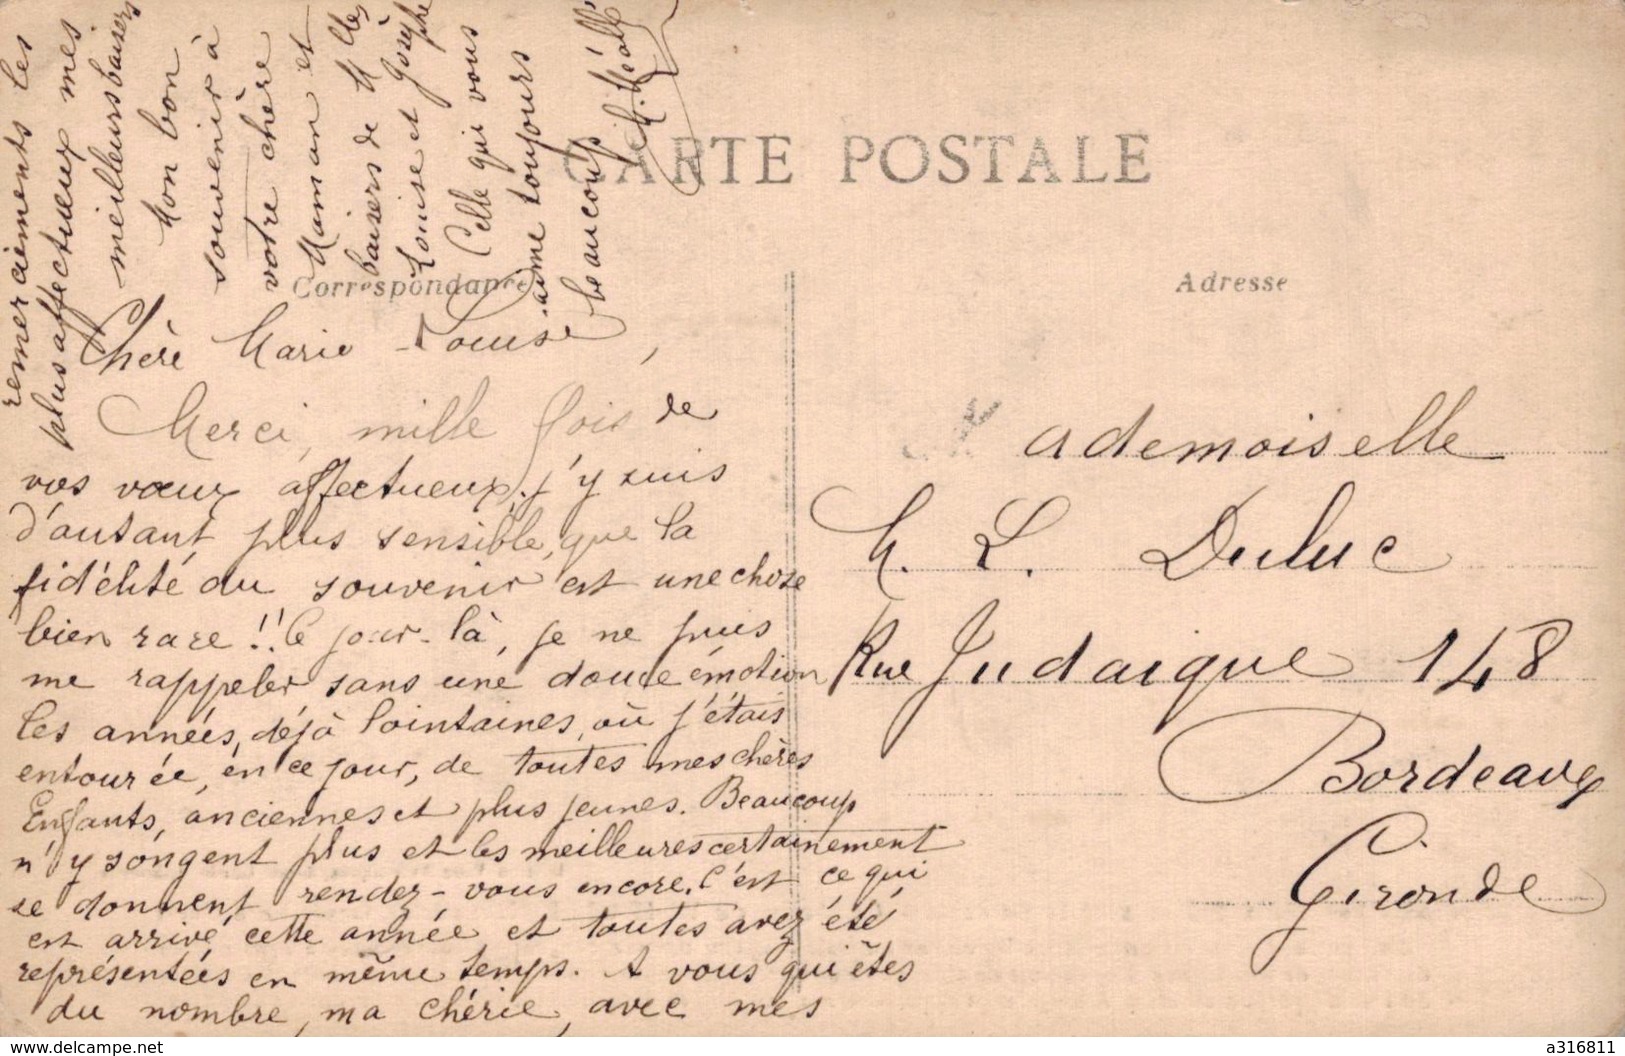 CARTE POSTALE
Correspondance
Adresse
Chère Marie-Louise,
Merci, mille fois de
vos vœux affectueux, j'y suis
d'autant plus sensible, que la
fidélité du souvenir est une chose
bien rare!! Ce jour-là, je ne puis
me rappeler sans une douce émotion
les années, déjà lointaines, où j'étais
entourée, en ce jour, de toutes mes chères
Enfants, anciennes et plus jeunes. Beaucoup
n'y songent plus et les meilleures certainement
se donnent rendez-vous encore. C'est ce qui
est arrivé cette année et toutes avez été
représentées en même temps. A vous qui êtes
du nombre, ma chérie, avec mes
remerciements les
plus affectueux mes
meilleurs baisers
Mon bon
souvenir à
votre chère
Maman et
baisers de Mlles
Louise et Josèphe
Celle qui vous
aime toujours
beaucoup
Mademoiselle
M. L. Duluc
Rue Judaique 148
Bordeaux
Gironde
www.delcampe.net
a316811